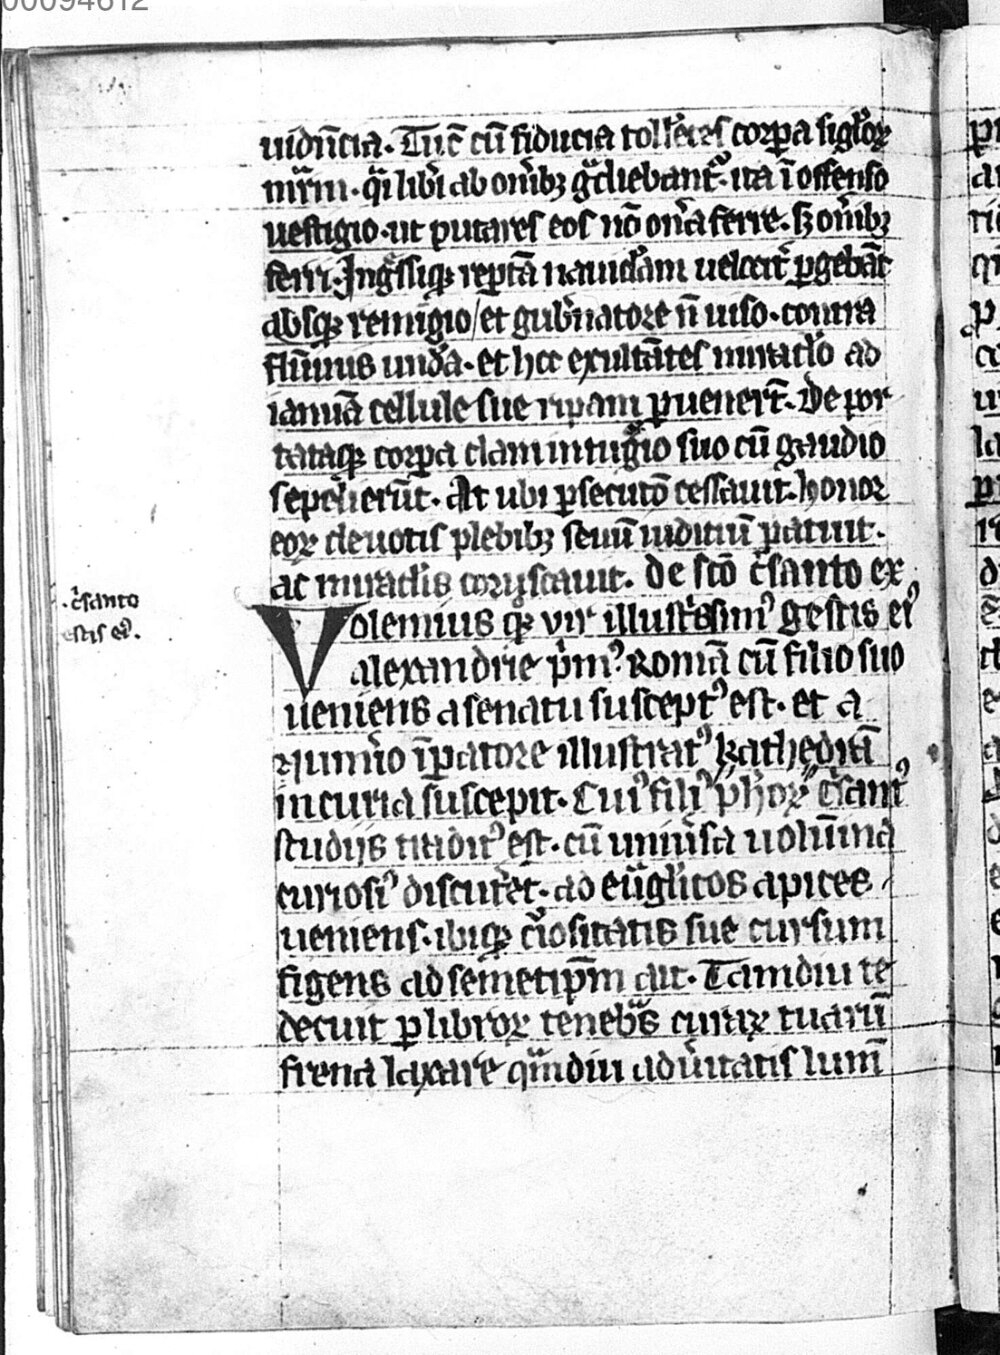 00094612
uidētia. Tūc cū fiducia tollētes corpa siglor̄ꝝ
mr̄m. qͥ liberi ab om̄ibꝫ gͣdiebantᷣ. ita ī offenso
uestigio. ut putares eos nō on̄a ferre. sꝫ om̄ibꝫ
ferri. Ingͤssiqꝫ reptā nauiclam uelocitͬ ꝑgebāt
absqꝫ remigio / et gubnatore n̄ uiso. contra
flūinis undā. et hec exultātes miraclo ad
ianuā cellule sue ripam ꝑuenert̄. De por
tataqꝫ corpa clam intugͥo suo cū gaudio
sepelierūt. At ubi ꝑsecutō cessauit. honor
eoꝝ deuotis plebibꝫ seruū iuditiū patuit.
ac miraclis coruscauit. de scō cͥsanto ex
Volemius qꝫ vir illustͥssimꝰ gestis eiꝰ
alexandrie pͥmꝰ. Romā cū filio suo
ueniens a senatu susceptꝰ est. et a
numͥo īpatore illustratꝰ kathedrā
in curia suscepit. Cuiꝰ filiꝰ ph̄oꝝ cͥsantꝰ
studijs traditꝰ est. cū uniūsa uolūina
curiosiꝰ discutͤet. ad eūglicos apices
ueniens. ibiqꝫ cͥiositatis sue cursum
figens ad semetip̄m ait. Tamdiu te
decuit ꝑ libroꝝ tenebͣs curiaꝝ tuarū
frena laxare qͣmdiu ad ūitatis lum̄
. cͥsanto
estis eiꝰ.